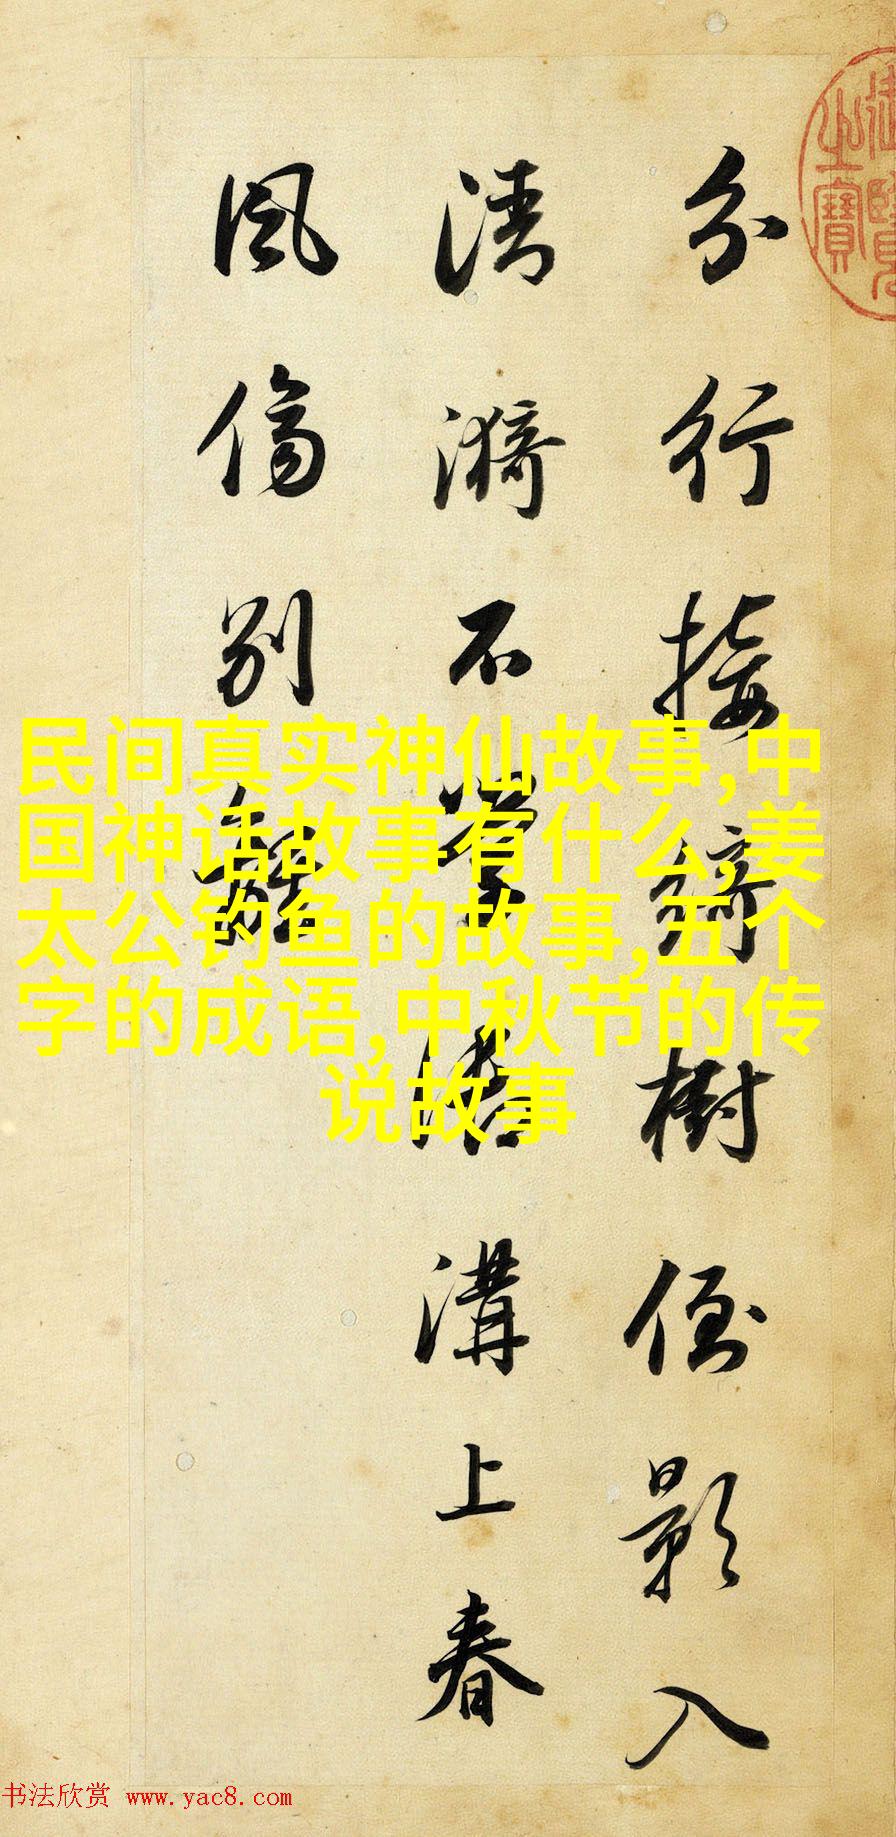 分行接綺樹倒影入
清漪不學御溝上春
風傷別離
御覽之寶
民间真实神仙故事,中
国神话故事有什么,姜
太公钓鱼的故事,五个
字的成语,中秋节的传
说故事
书法欣赏 www.yac8.com